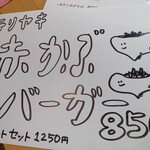 テリヤキ
赤かぶ
バーガー
850
セット1250円